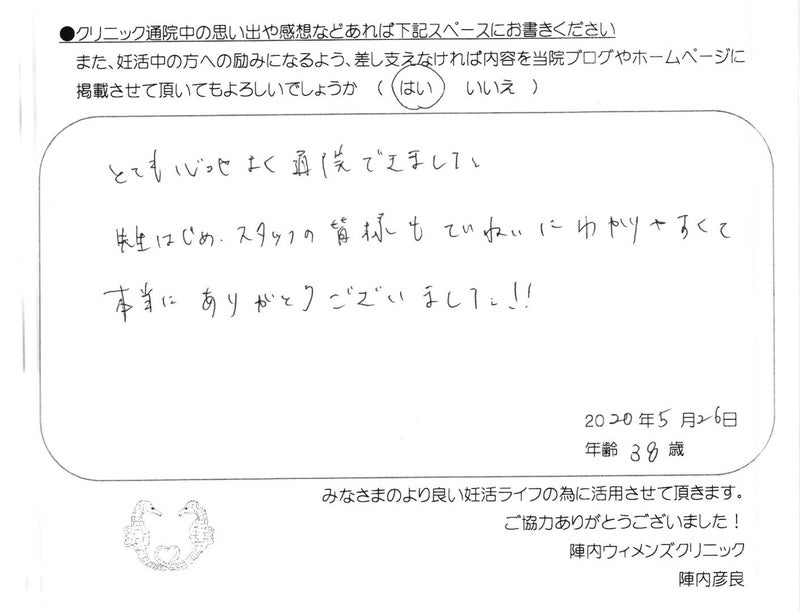 ●クリニック通院中の思い出や感想などあれば下記スペースにお書きください
また、妊活中の方への励みになるよう、差し支えなければ内容を当院ブログやホームページに
掲載させて頂いてもよろしいでしょうか （ はい いいえ ）
とても心地よく通院できました。
先生はじめ、スタッフの皆様もていねいにわかりやすくて
本当にありがとうございました!!
2020年5月26日
年齢 38歳
みなさまのより良い妊活ライフの為に活用させて頂きます。
ご協力ありがとうございました！
陣内ウィメンズクリニック
陣内彦良